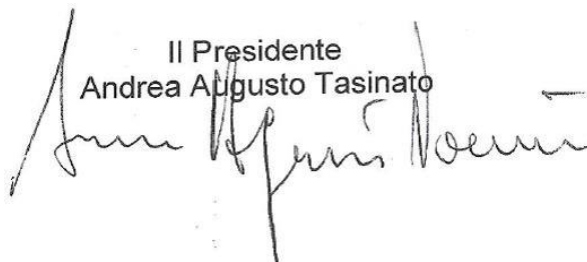 Il Presidente
Andrea Augusto Tasinato